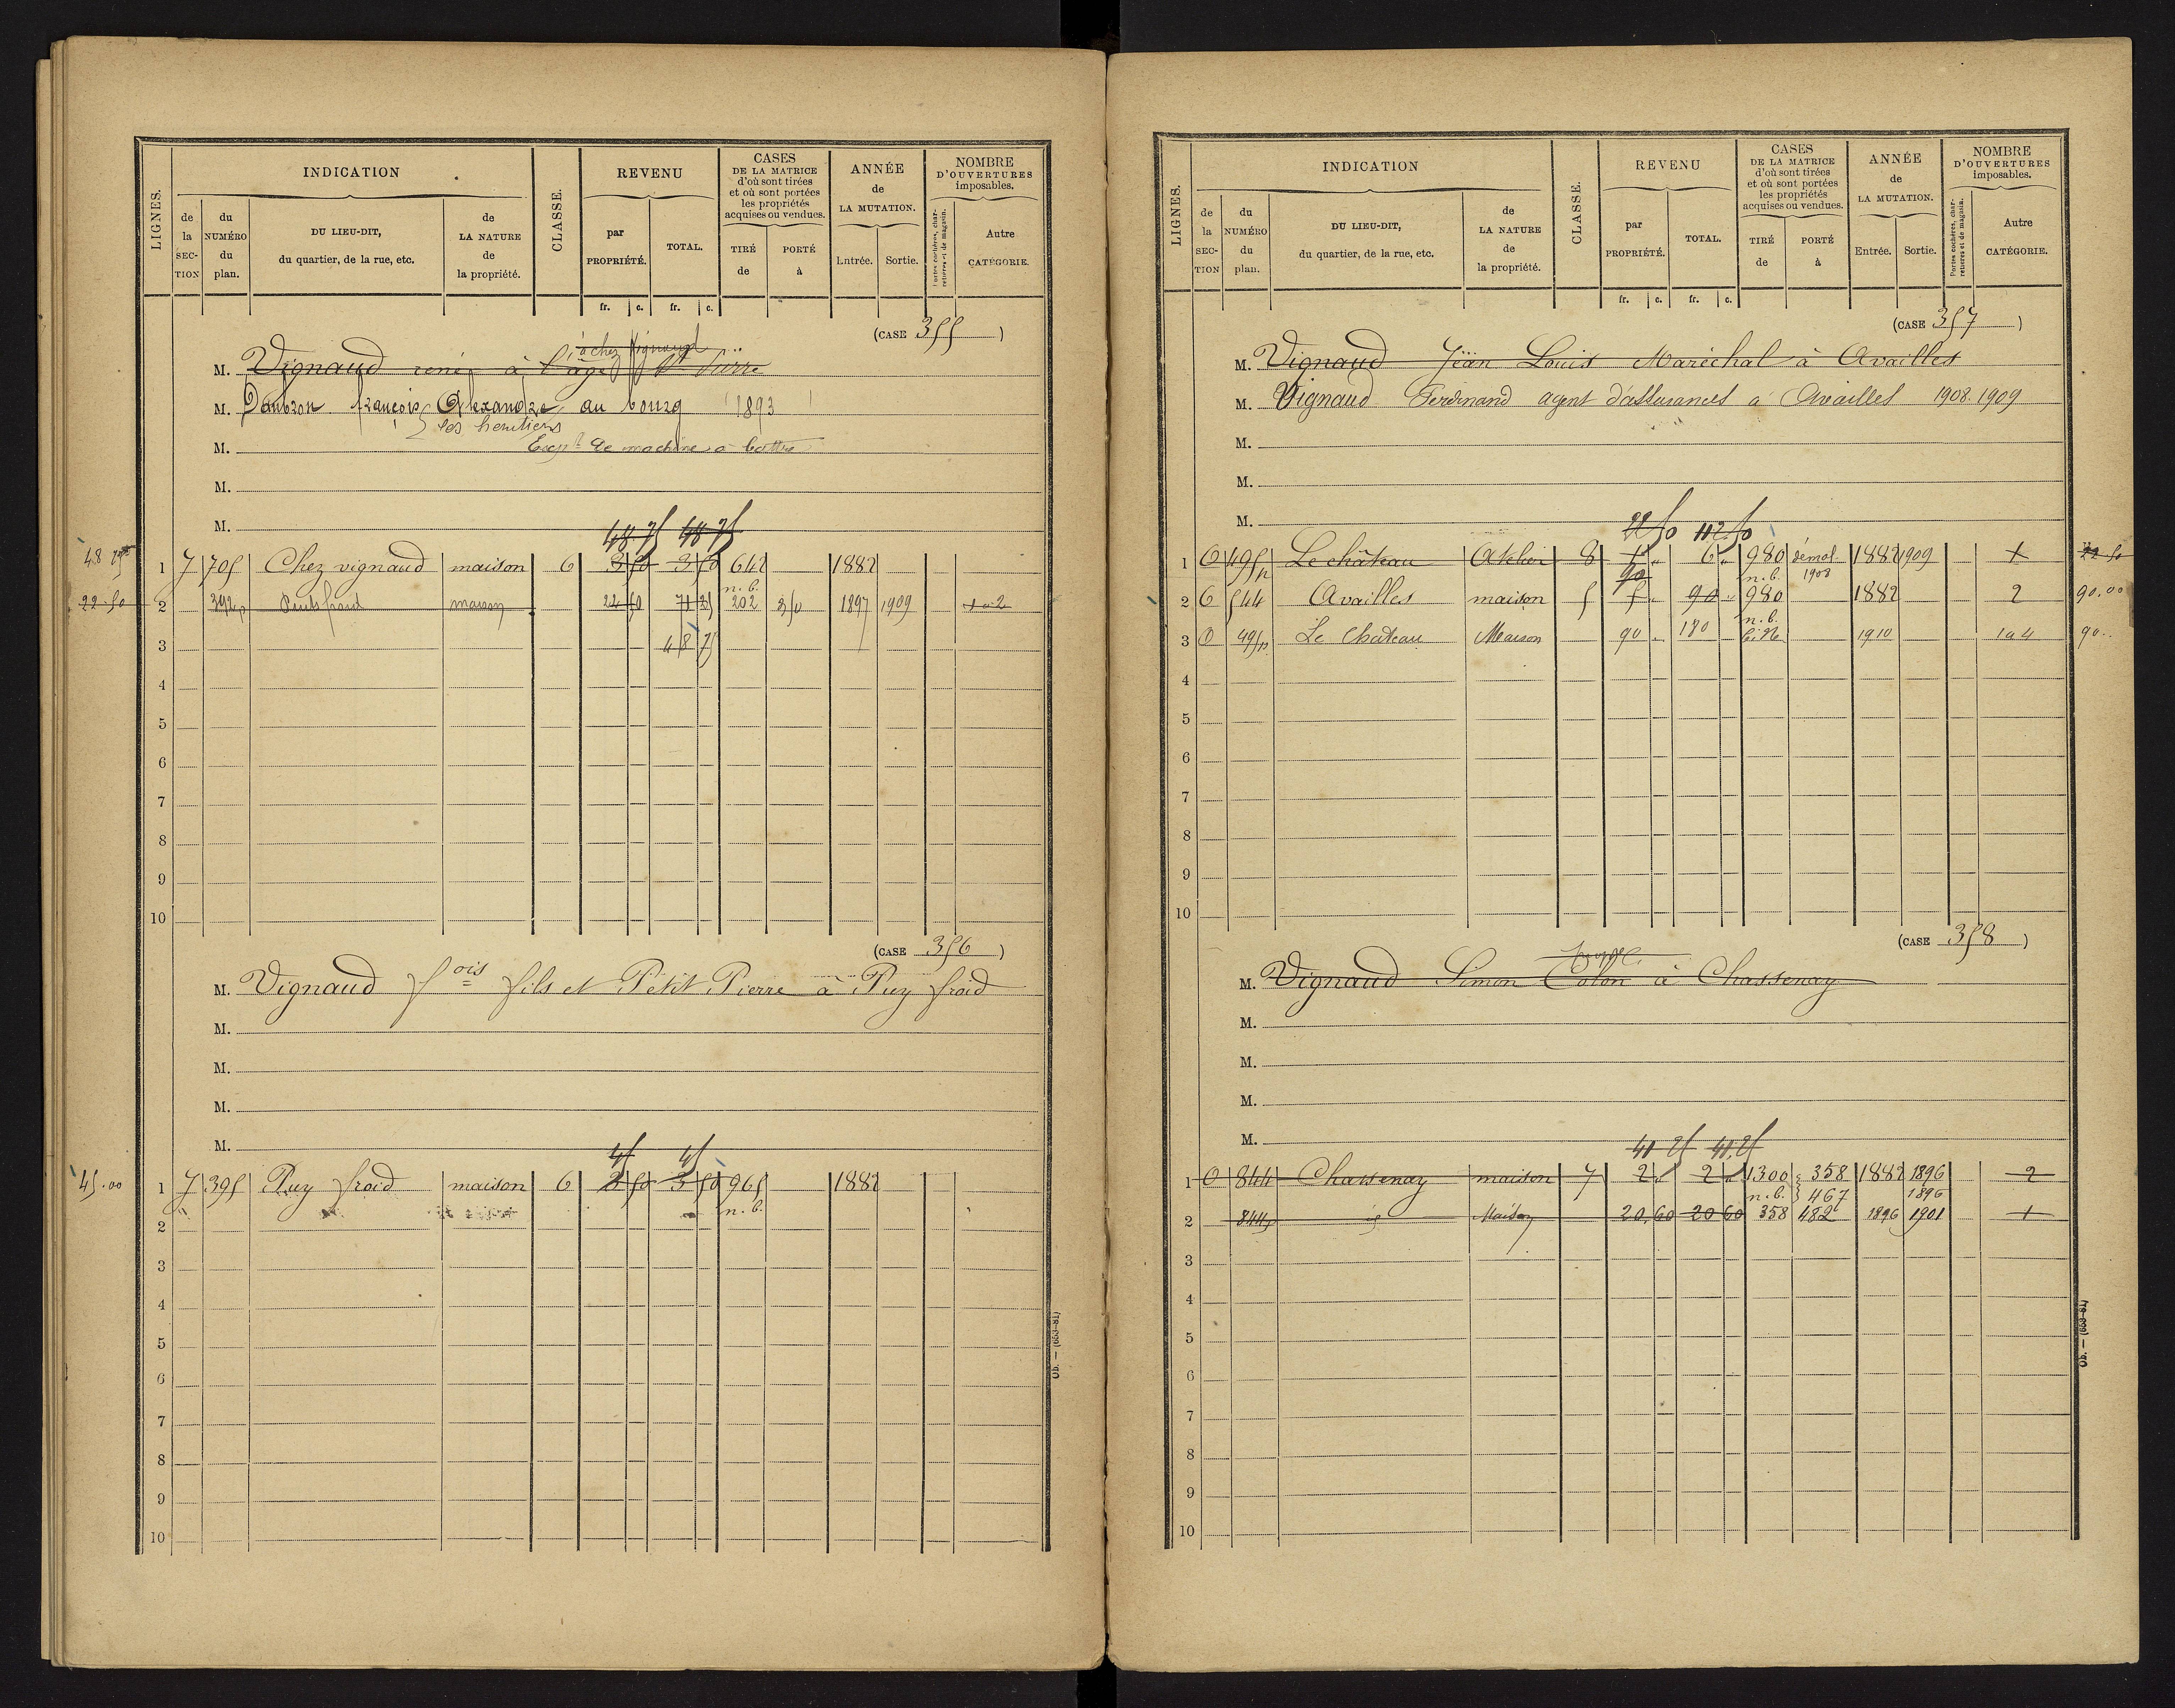 LIGNES.
INDICATION
de la SECTION
du NUMÉRO du plan.
DU LIEU-DIT, du quartier, de la rue, etc.
de LA NATURE de la propriété.
CLASSE.
REVENU
par PROPRIÉTÉ.
TOTAL.
fr. c. fr. c.
CASES DE LA MATRICE d'où sont tirées et où sont portées les propriétés acquises ou vendues.
TIRÉ de
PORTÉ à
ANNÉE de LA MUTATION.
Entrée. Sortie.
NOMBRE D'OUVERTURES imposables.
Portes cochères, charretières et de magasin.
Autre CATÉGORIE.
(CASE 355)
à chez Vignaud
M. Vignaud rené à l'âge St
M. Daubron françois Alexandre au bourg 1893
les heritiers
M. Exp de machine a battre
M.
M.
48 75 48 75
48 75 1 J 705 Chez vignaud maison 6 3 50 3 50 642 1882
n.b.
22.50 2 392p maison 22 50 71 25 202 350 1897 1909 1 a 2
3 48 75
4
5
6
7
8
9
10
(CASE 356)
M. Vignaud fois fils et Petit Pierre à Puy froid
M.
M.
M.
M.
45 45
45.00 1 J 395 Puy froid maison 6 3 50 3 50 965 1882
n.b.
2
3
4
5
6
7
8
9
10
Ob. — (653-81)
LIGNES.
INDICATION
de la SECTION
du NUMÉRO du plan.
DU LIEU-DIT, du quartier, de la rue, etc.
de LA NATURE de la propriété.
CLASSE.
REVENU
par PROPRIÉTÉ.
TOTAL.
fr. c. fr. c.
CASES DE LA MATRICE d'où sont tirées et où sont portées les propriétés acquises ou vendues.
TIRÉ de
PORTÉ à
ANNÉE de LA MUTATION.
Entrée. Sortie.
NOMBRE D'OUVERTURES imposables.
Portes cochères, charretières et de magasin.
Autre CATÉGORIE.
(CASE 357)
M. Vignaud Jean Louis Maréchal à Availles
M. Vignaud Ferdinand agent d'assurances a Availles 1908.1909
M.
M.
M.
22 50 112 50
1 O 495p Le château Atelier 8 1 " 6 " 980 démol. 1882 1909 1 22 50
90 n.b. 1908
2 O 544 Availles maison 5 5 " 90 " 980 1882 2 90.00
n.b.
3 O 495p Le Château Maison 90 " 180 1910 1 a 4 90..
4
5
6
7
8
9
10
(CASE 358)
M. Vignaud Simon Colon à Chassenay
M.
M.
M.
M.
41 25 41.25
1 O 844 Chassenay maison 7 2 " 2 " 1300 358 1882 1896 2
n.b. 467 1896
2 844p id Maison 20,60 20 60 358 482 1896 1901 1
3
4
5
6
7
8
9
10
Ob. — (653-81)